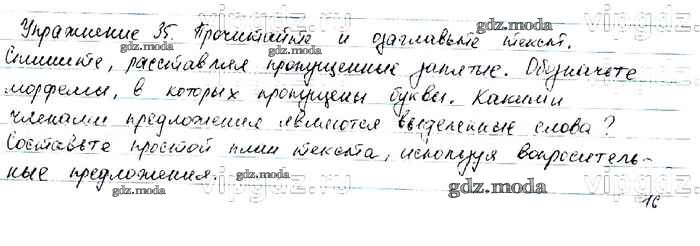 Упражнение 35. Прочитайте и озаглавьте текст.
Спишите, расставляя пропущенные запятые. Обозначьте
морфемы, в которых пропущены буквы. Какими
членами предложения являются выделенные слова?
Составьте простой план текста, используя вопроситель-
ные предложения.
16
gdz.moda
vipgdz.ru